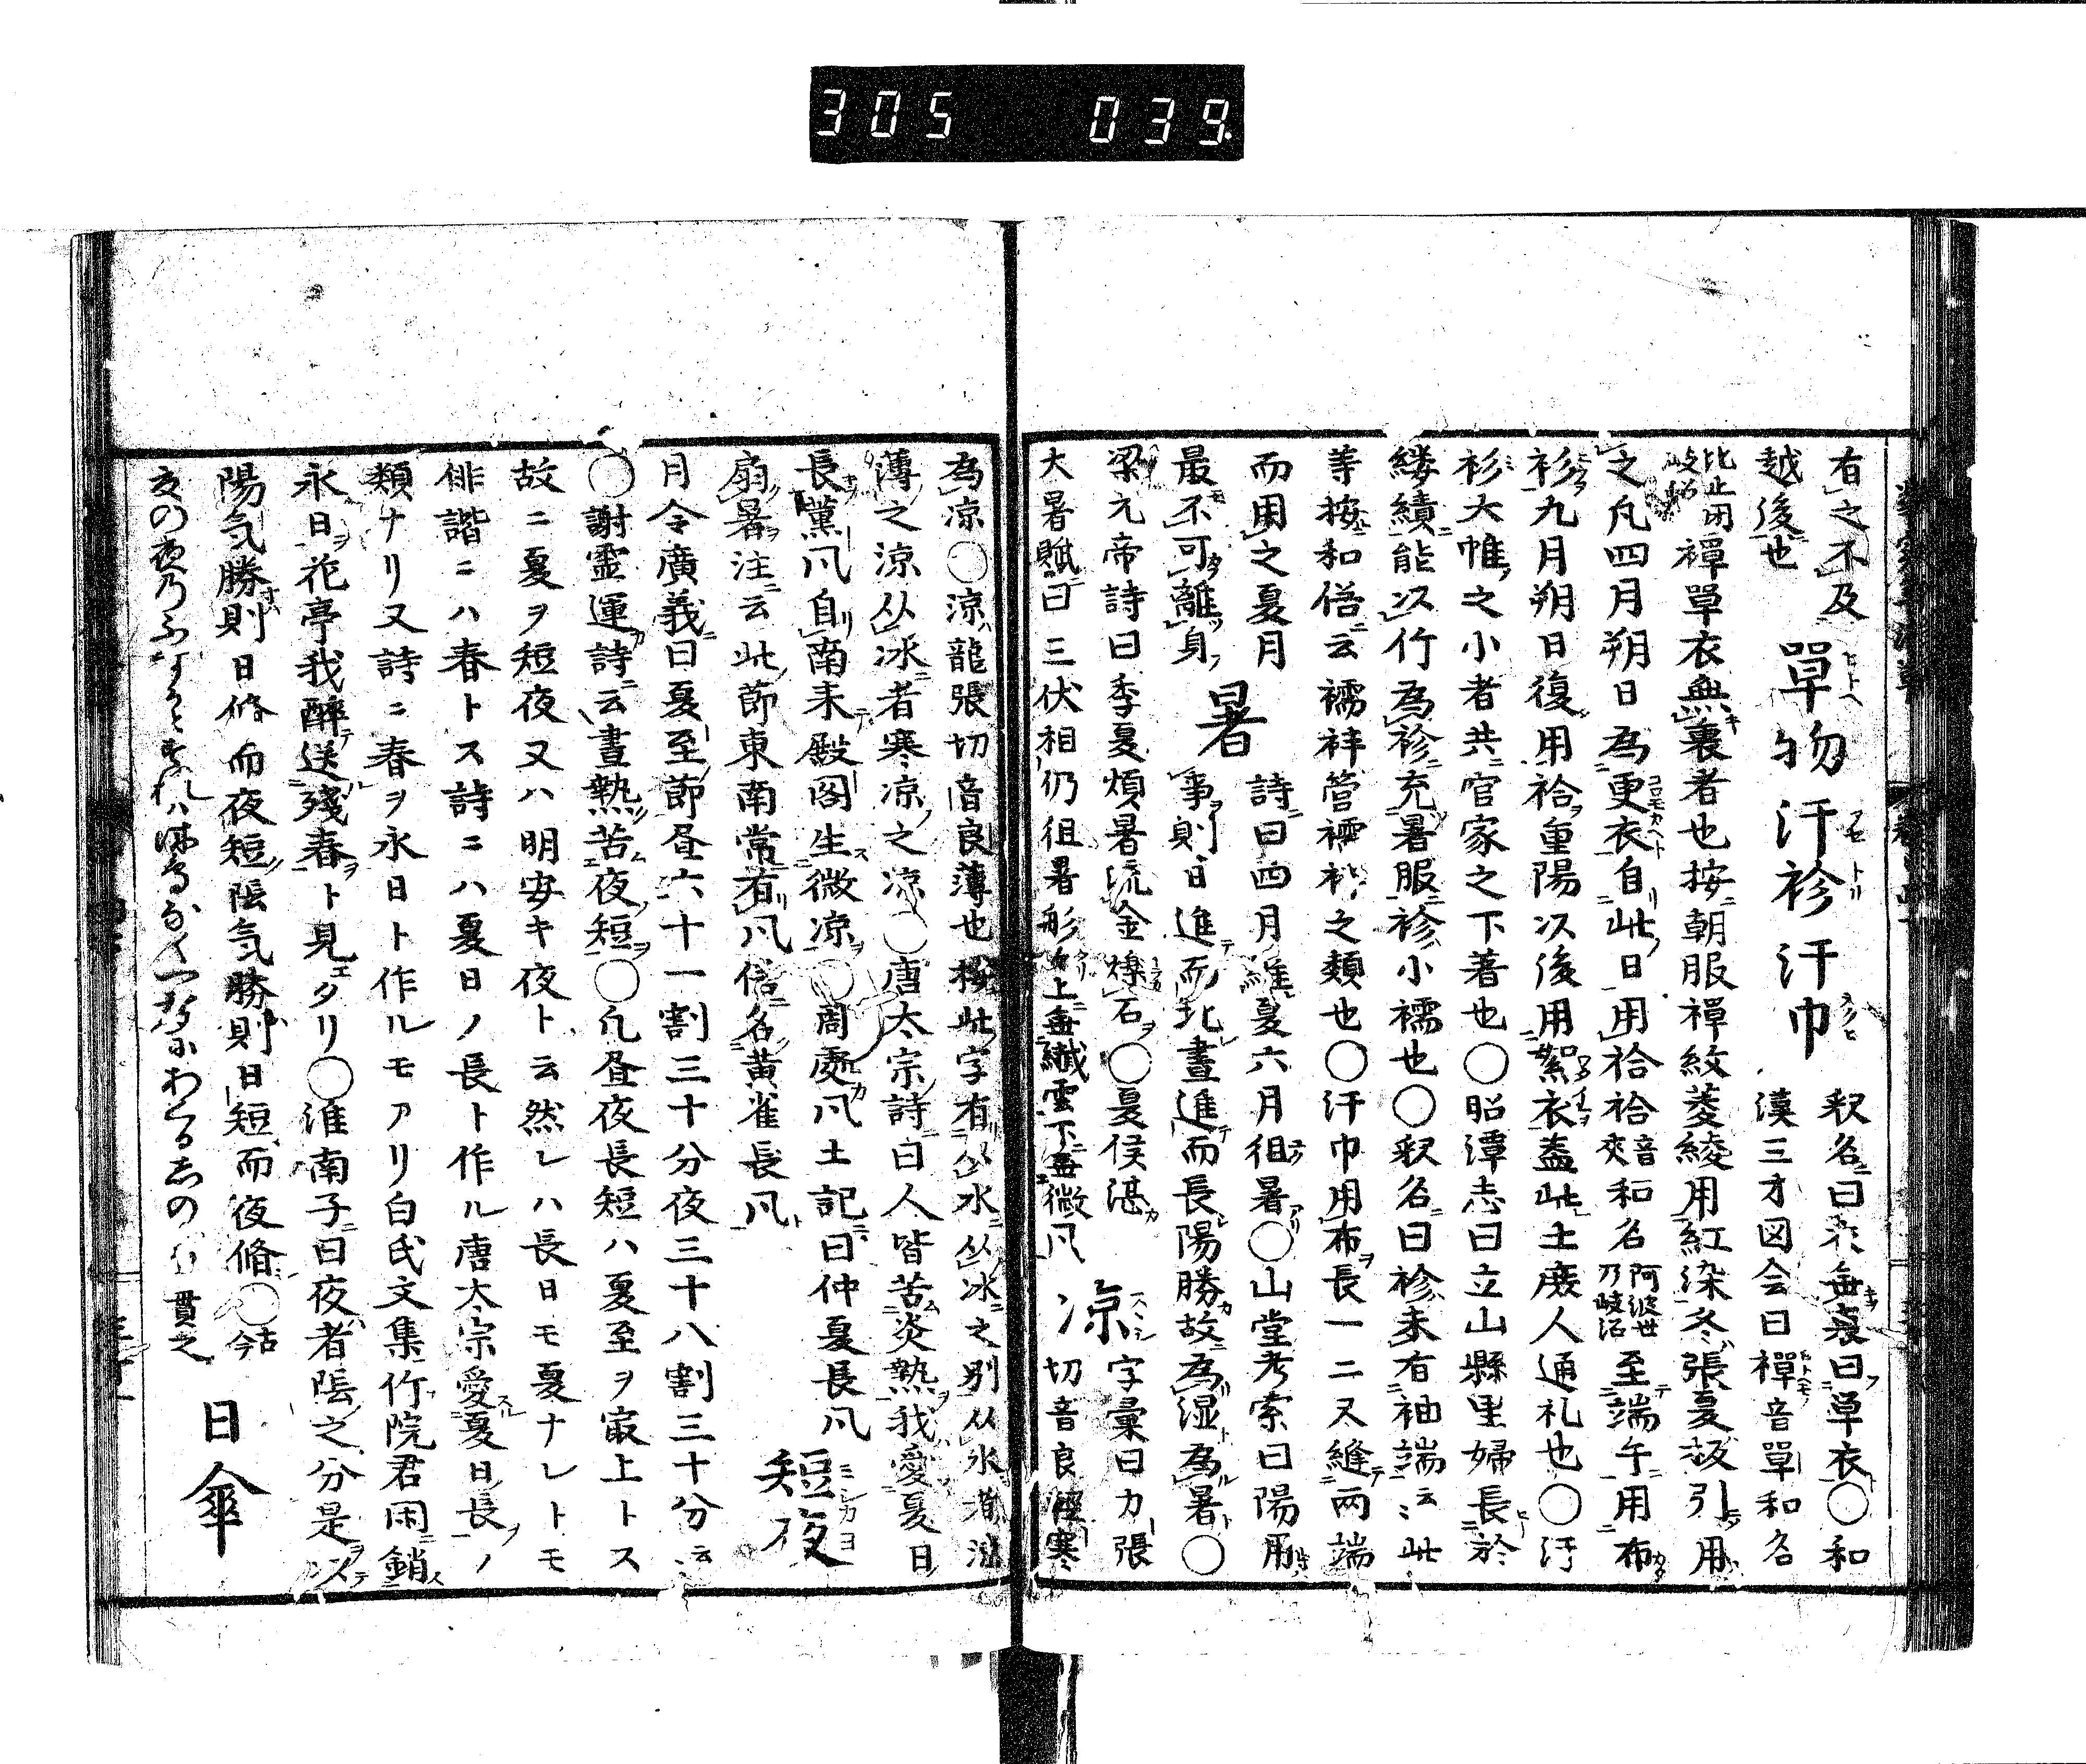 305 039
有之不及
越後也
單物 汗袗 汗巾
釈名曰衣無裏曰單衣〇和
漢三才図会曰襌音單和名
比止閉
岐沼
襌單衣無裏者也按朝服襌紋菱綾用紅染冬張夏板引用
之凡四月朔日為更衣自此日用袷袷音夾和名阿波世乃岐沼至端午用布
衫九月朔日復用袷重陽以後用絮衣蓋此土庶人通礼也〇汗
衫大帷之小者共官家之下著也〇昭潭志曰立山縣里婦長於
緝績能以竹為袗充暑服袗小襦也〇釈名曰袗未有袖端云云此
等按和俗云襦袢管襦袢之類也〇汗巾用布長一二叉縫両端
而用之夏月
最不可離身
暑
詩曰四月維夏六月徂暑〇山堂考索曰陽用
事則日進而北晝進而長陽勝故為湿為暑〇
梁元帝詩曰季夏煩暑流金爍石〇夏侯湛
大暑賦曰三伏相仍徂暑彤々上無繊雲下無微凡
凉
字彙曰力張
切音良輕寒
為凉〇涼龍張切音良薄也按此字有从水从冰之別从水者
薄之涼从冰者寒凉之凉〇唐太宗詩曰人皆苦炎熱我愛夏日
長薫凡自南来殿閣生微凉〇周處凡土記曰仲夏長凡
扇暑注云此節東南常有凡俗名黄雀長凡
短夜
月令廣義曰夏至節昼六十一割三十分夜三十八割三十分云
〇謝霊運詩云晝熱苦夜短〇凡昼夜長短ハ夏至ヲ㝡上トス
故ニ夏ヲ短夜又ハ明安キ夜ト云然レハ長日モ夏ナレトモ
俳諧ニハ春トス詩ニハ夏日ノ長ト作ル唐太宗愛夏日長ノ
類ナリ又詩ニ春ヲ永日ト作ルモアリ白氏文集竹院君閑銷
永日花亭我醉送殘春ト見エタリ〇淮南子曰夜者陰之分是以
陽気勝則日脩而夜短陰気勝則日短而夜脩〇古今
夏の夜のふすかとすれハ 貫之
日傘